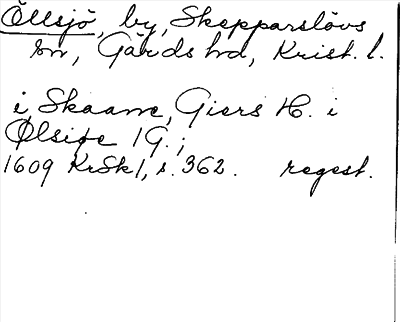 Öllsjö, by, Skepparslövs
sn, Gärds hd, Krist. l.
i Skaane, Giers H. i
Ølsiøe 1 G.;
1609 KrSk 1, s. 362. regest.